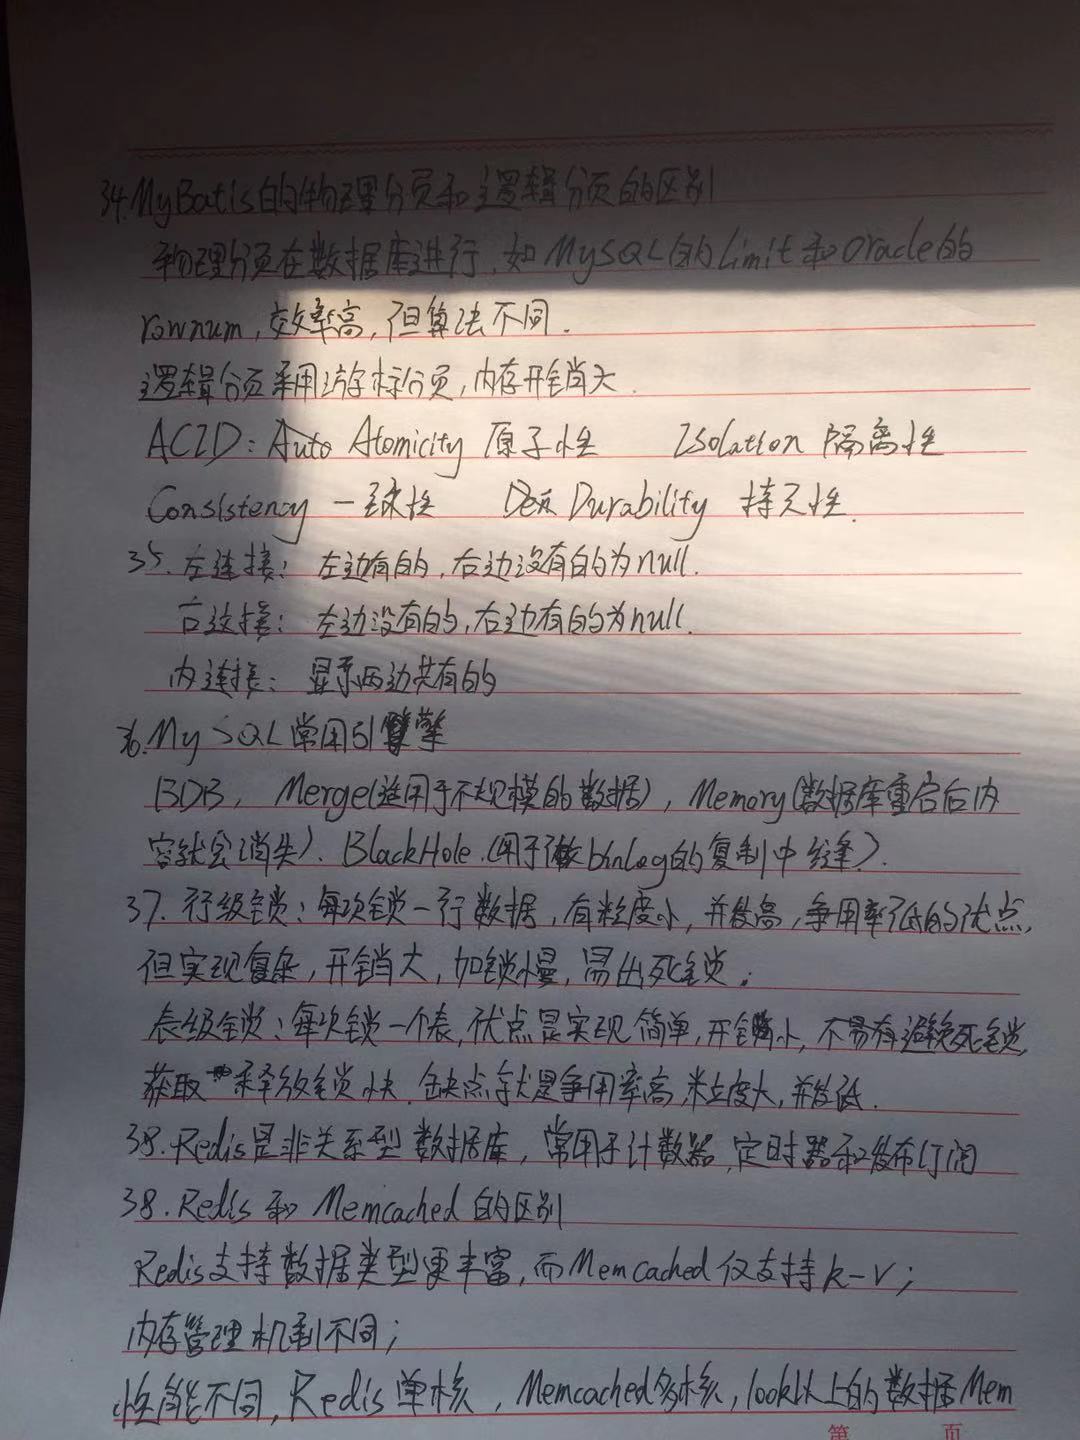 34.MyBatis的物理分页和逻辑分页的区别
物理分页在数据库进行,如MySQL的Limit和Oracle的
rownum,效率高,但算法不同.
逻辑分页采用游标分页,内存开销大.
ACID:Auto Atomicity 原子性 Isolation 隔离性
Consistency 一致性 Den Durability 持久性.
35.左连接:左边有的,右边没有的为null.
右连接:左边没有的,右边有的为null.
内连接:显示两边共有的
36.MySQL常用引擎
BDB, Merge(适用于大规模的数据), Memory(数据库重启后内
容就会消失). BlackHole.(用于做binlog的复制中继).
37.行级锁:每次锁一行数据,有粒度小,并发高,争用率低的优点,
但实现复杂,开销大,加锁慢,易出死锁;
表级锁:每次锁一个表,优点是实现简单,开销小,不易有避免死锁,
获取释放锁快.缺点就是争用率高,粒度大,并发低.
38.Redis是非关系型数据库,常用于计数器,定时器和发布订阅
38.Redis和Memcached的区别
Redis支持数据类型更丰富,而Memcached仅支持k-v;
内存管理机制不同;
性能不同,Redis单核,Memcached多核,100k以上的数据Mem
第 页